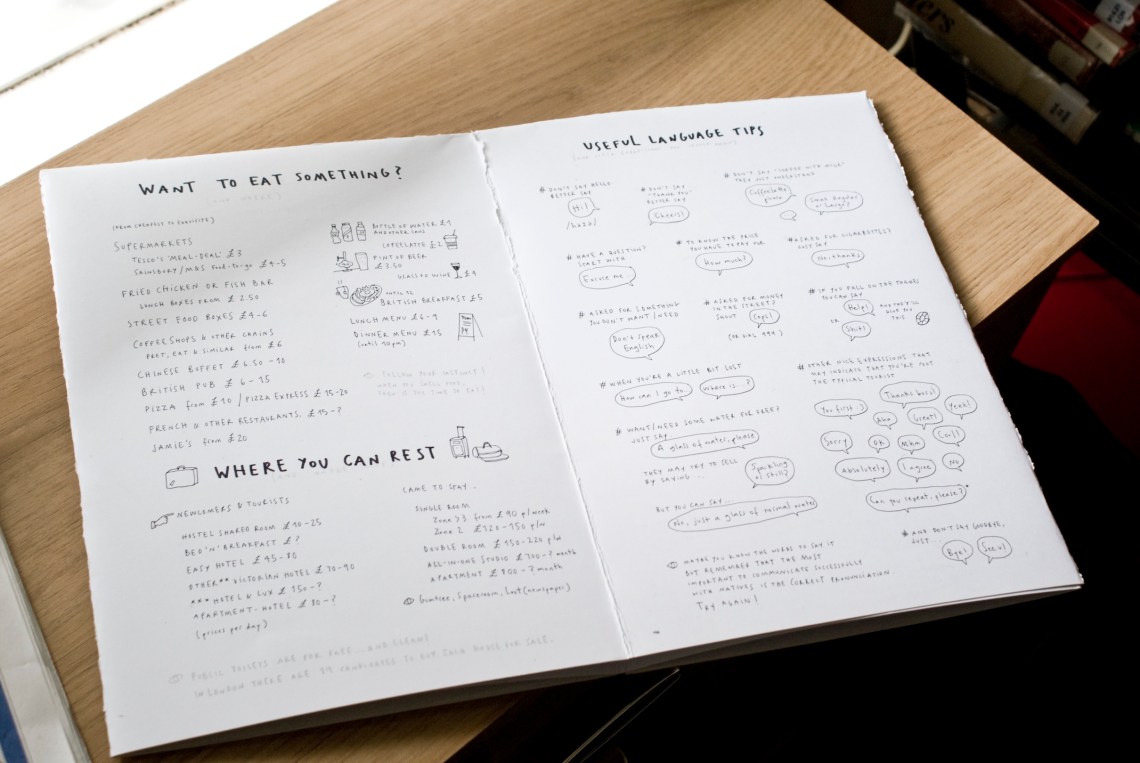 WANT TO EAT SOMETHING?
(FROM CHEAPEST TO EXQUISITE)
SUPERMARKETS
TESCO'S 'MEAL-DEAL' £3
SAINSBURY / M&S Food-to-go £4-5
FRIED CHICKEN OR FISH BAR
LUNCH BOXES FROM £2.50
STREET FOOD BOXES £4-6
COFFEESHOPS & OTHER CHAINS
PRET, EAT & SIMILAR from £6
CHINESE BUFFET £6.50-10
BRITISH PUB £6-15
PIZZA from £10 / PIZZA EXPRESS £15-20
FRENCH & OTHER RESTAURANTS £15-?
JAMIE'S from £20
BOTTLE OF WATER £1
AND OTHER CANS
COFFEE LATTE £2
PINT OF BEER
£3.50
GLASS OF WINE £4
BRITISH BREAKFAST £5
LUNCH MENU £6-9
DINNER MENU £15
(until 10pm)
WHERE YOU CAN REST
NEWCOMERS & TOURISTS
HOSTEL SHARED ROOM £10-25
BED'N'BREAKFAST £?
EASY HOTEL £45-80
OTHER** VICTORIAN HOTEL £70-90
*** HOTEL & LUX £150-?
APARTMENT-HOTEL £80-?
(prices per day)
CAME TO STAY..
SINGLE ROOM
Zone >3 from £90 p/week
Zone 2 £120-150 p/w
DOUBLE ROOM £150-220 p/w
ALL-IN-ONE STUDIO £700-? month
APARTMENT £800-? month
Gumtree, Spareroom, Loot (newspaper)
PUBLIC TOILETS ARE FOR FREE ...AND CLEAN!
IN LONDON THERE ARE 59 CANDIDATES TO BUY EACH HOUSE FOR SALE.
USEFUL LANGUAGE TIPS
# DON'T SAY HELLO
BETTER SAY
Hi!
# DON'T SAY
"THANK YOU"
BETTER SAY
Cheers!
# DON'T SAY "COFFEE WITH MILK"
THEY WON'T UNDERSTAND
Coffee latte
please
Small, Regular
or Large?
# HAVE A QUESTION?
START WITH
Excuse me..
# TO KNOW THE PRICE
YOU HAVE TO PAY FOR
How much?
# ASKED FOR CIGARETTES?
JUST SAY
No, thanks
# ASKED FOR SOMETHING
YOU DON'T WANT / NEED
Don't speak
English
# ASKED FOR MONEY
IN THE STREET?
SHOUT
Cops!
(OR CALL 999)
# IF YOU FALL ON THE THAMES
YOU CAN SAY
Help!
OR
Shit!
AND THEY'LL
GIVE YOU
THIS
# WHEN YOU'RE A LITTLE BIT LOST
How can I go to..
Where is..?
# WANT/NEED SOME WATER FOR FREE?
JUST SAY
A glass of water, please
THEY MAY TRY TO SELL
BY SAYING...
Sparkling
or Still?
BUT YOU CAN SAY...
No, just a glass of normal water
# OTHER NICE EXPRESSIONS THAT
MAY INDICATE THAT YOU'RE NOT
THE TYPICAL TOURIST
You first :)
Thanks boss!
Aha
Great!
Yeah!
Sorry
OK
Mhm
Cool!
Absolutely
I agree
No
Can you repeat, please?
# AND DON'T SAY GOODBYE,
JUST...
Bye!
See u!
MAYBE YOU KNOW THE WORDS TO SAY IT
BUT REMEMBER THAT THE MOST
IMPORTANT TO COMMUNICATE SUCCESSFULLY
WITH NATIVES IS THE CORRECT PRONUNCIATION.
TRY AGAIN!